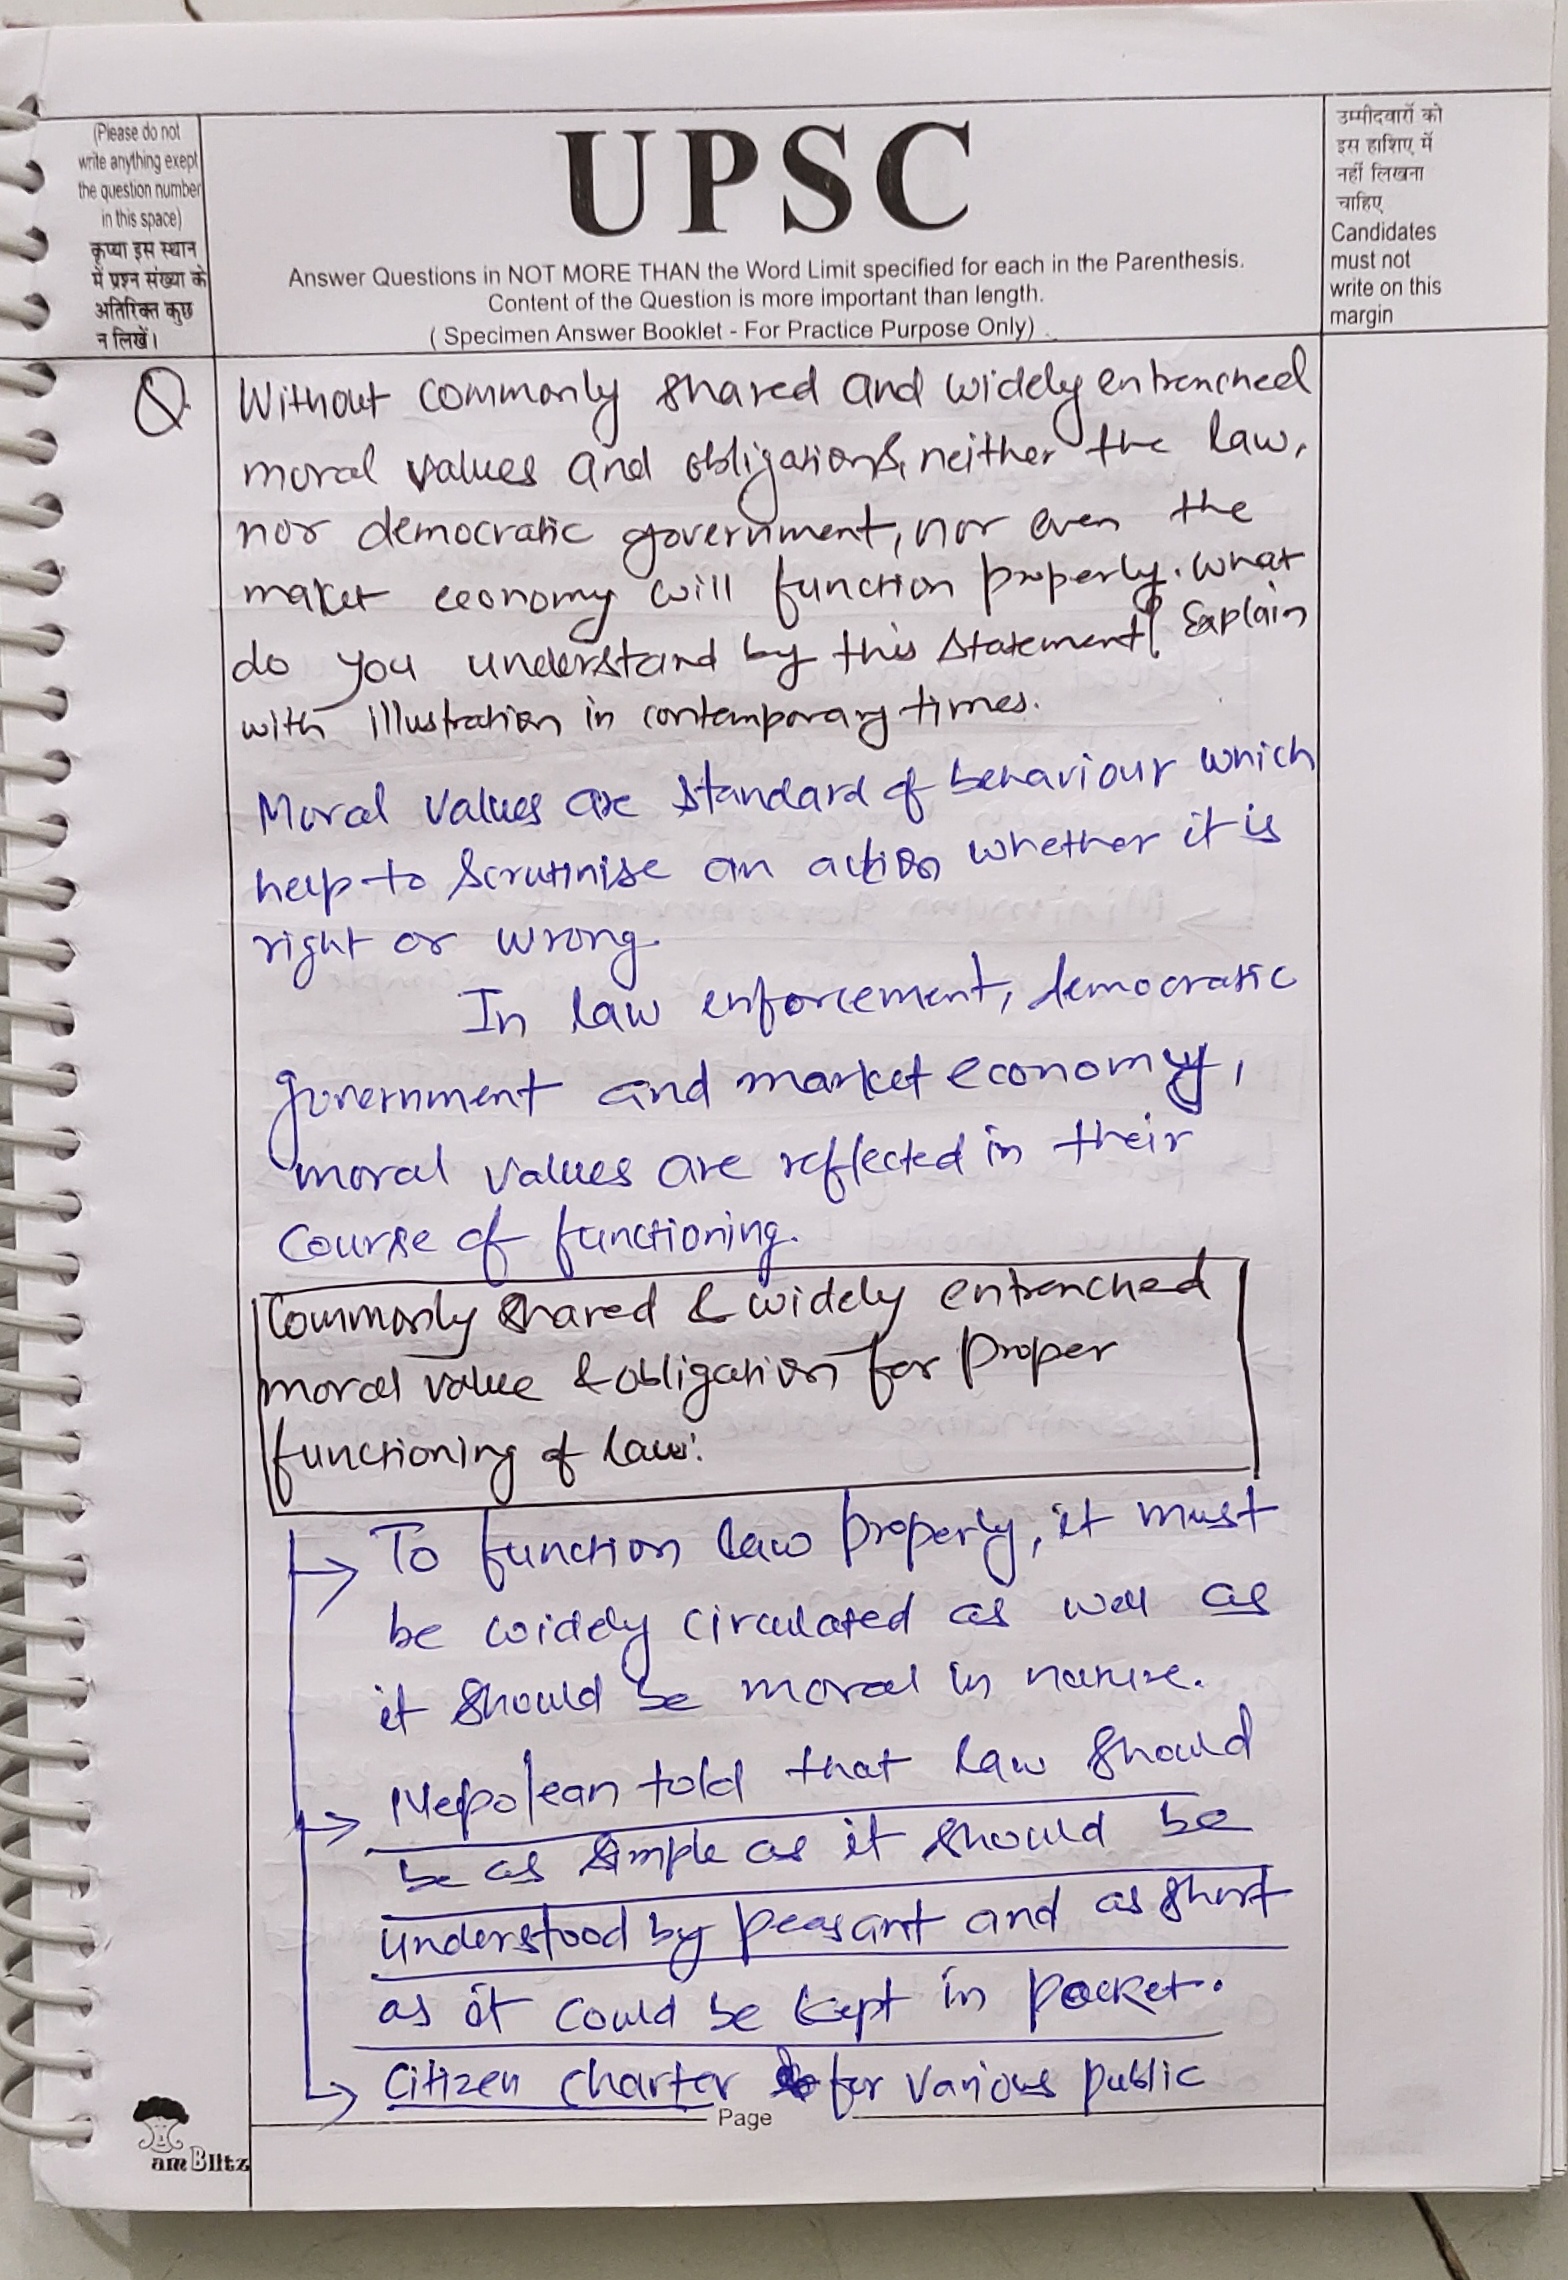 (Please do not
write anything exept
the question number
in this space)
कृप्या इस स्थान
में प्रश्न संख्या के
अतिरिक्त कुछ
न लिखें।
UPSC
Answer Questions in NOT MORE THAN the Word Limit specified for each in the Parenthesis.
Content of the Question is more important than length.
( Specimen Answer Booklet - For Practice Purpose Only)
उम्मीदवारों को
इस हाशिए में
नहीं लिखना
चाहिए
Candidates
must not
write on this
margin
Q. Without commonly shared and widely entrenched
moral values and obligations, neither the law,
nor democratic government, nor even the
maket economy will function properly. What
do you understand by this statement? Explain
with illustration in contemporary times.
Moral values are standard of behaviour which
help to scrutinise an action whether it is
right or wrong.
In law enforcement, democratic
government and market economy,
moral values are reflected in their
course of functioning.
Commonly shared & widely entrenched
moral value & obligation for proper
functioning of law:
→ To function law properly, it must
be widely circulated as well as
it should be moral in nature.
→ Nepolean told that law should
be as simple as it should be
understood by peasant and as short
as it could be kept in pocket.
→ Citizen charter for various public
Page
am Blitz